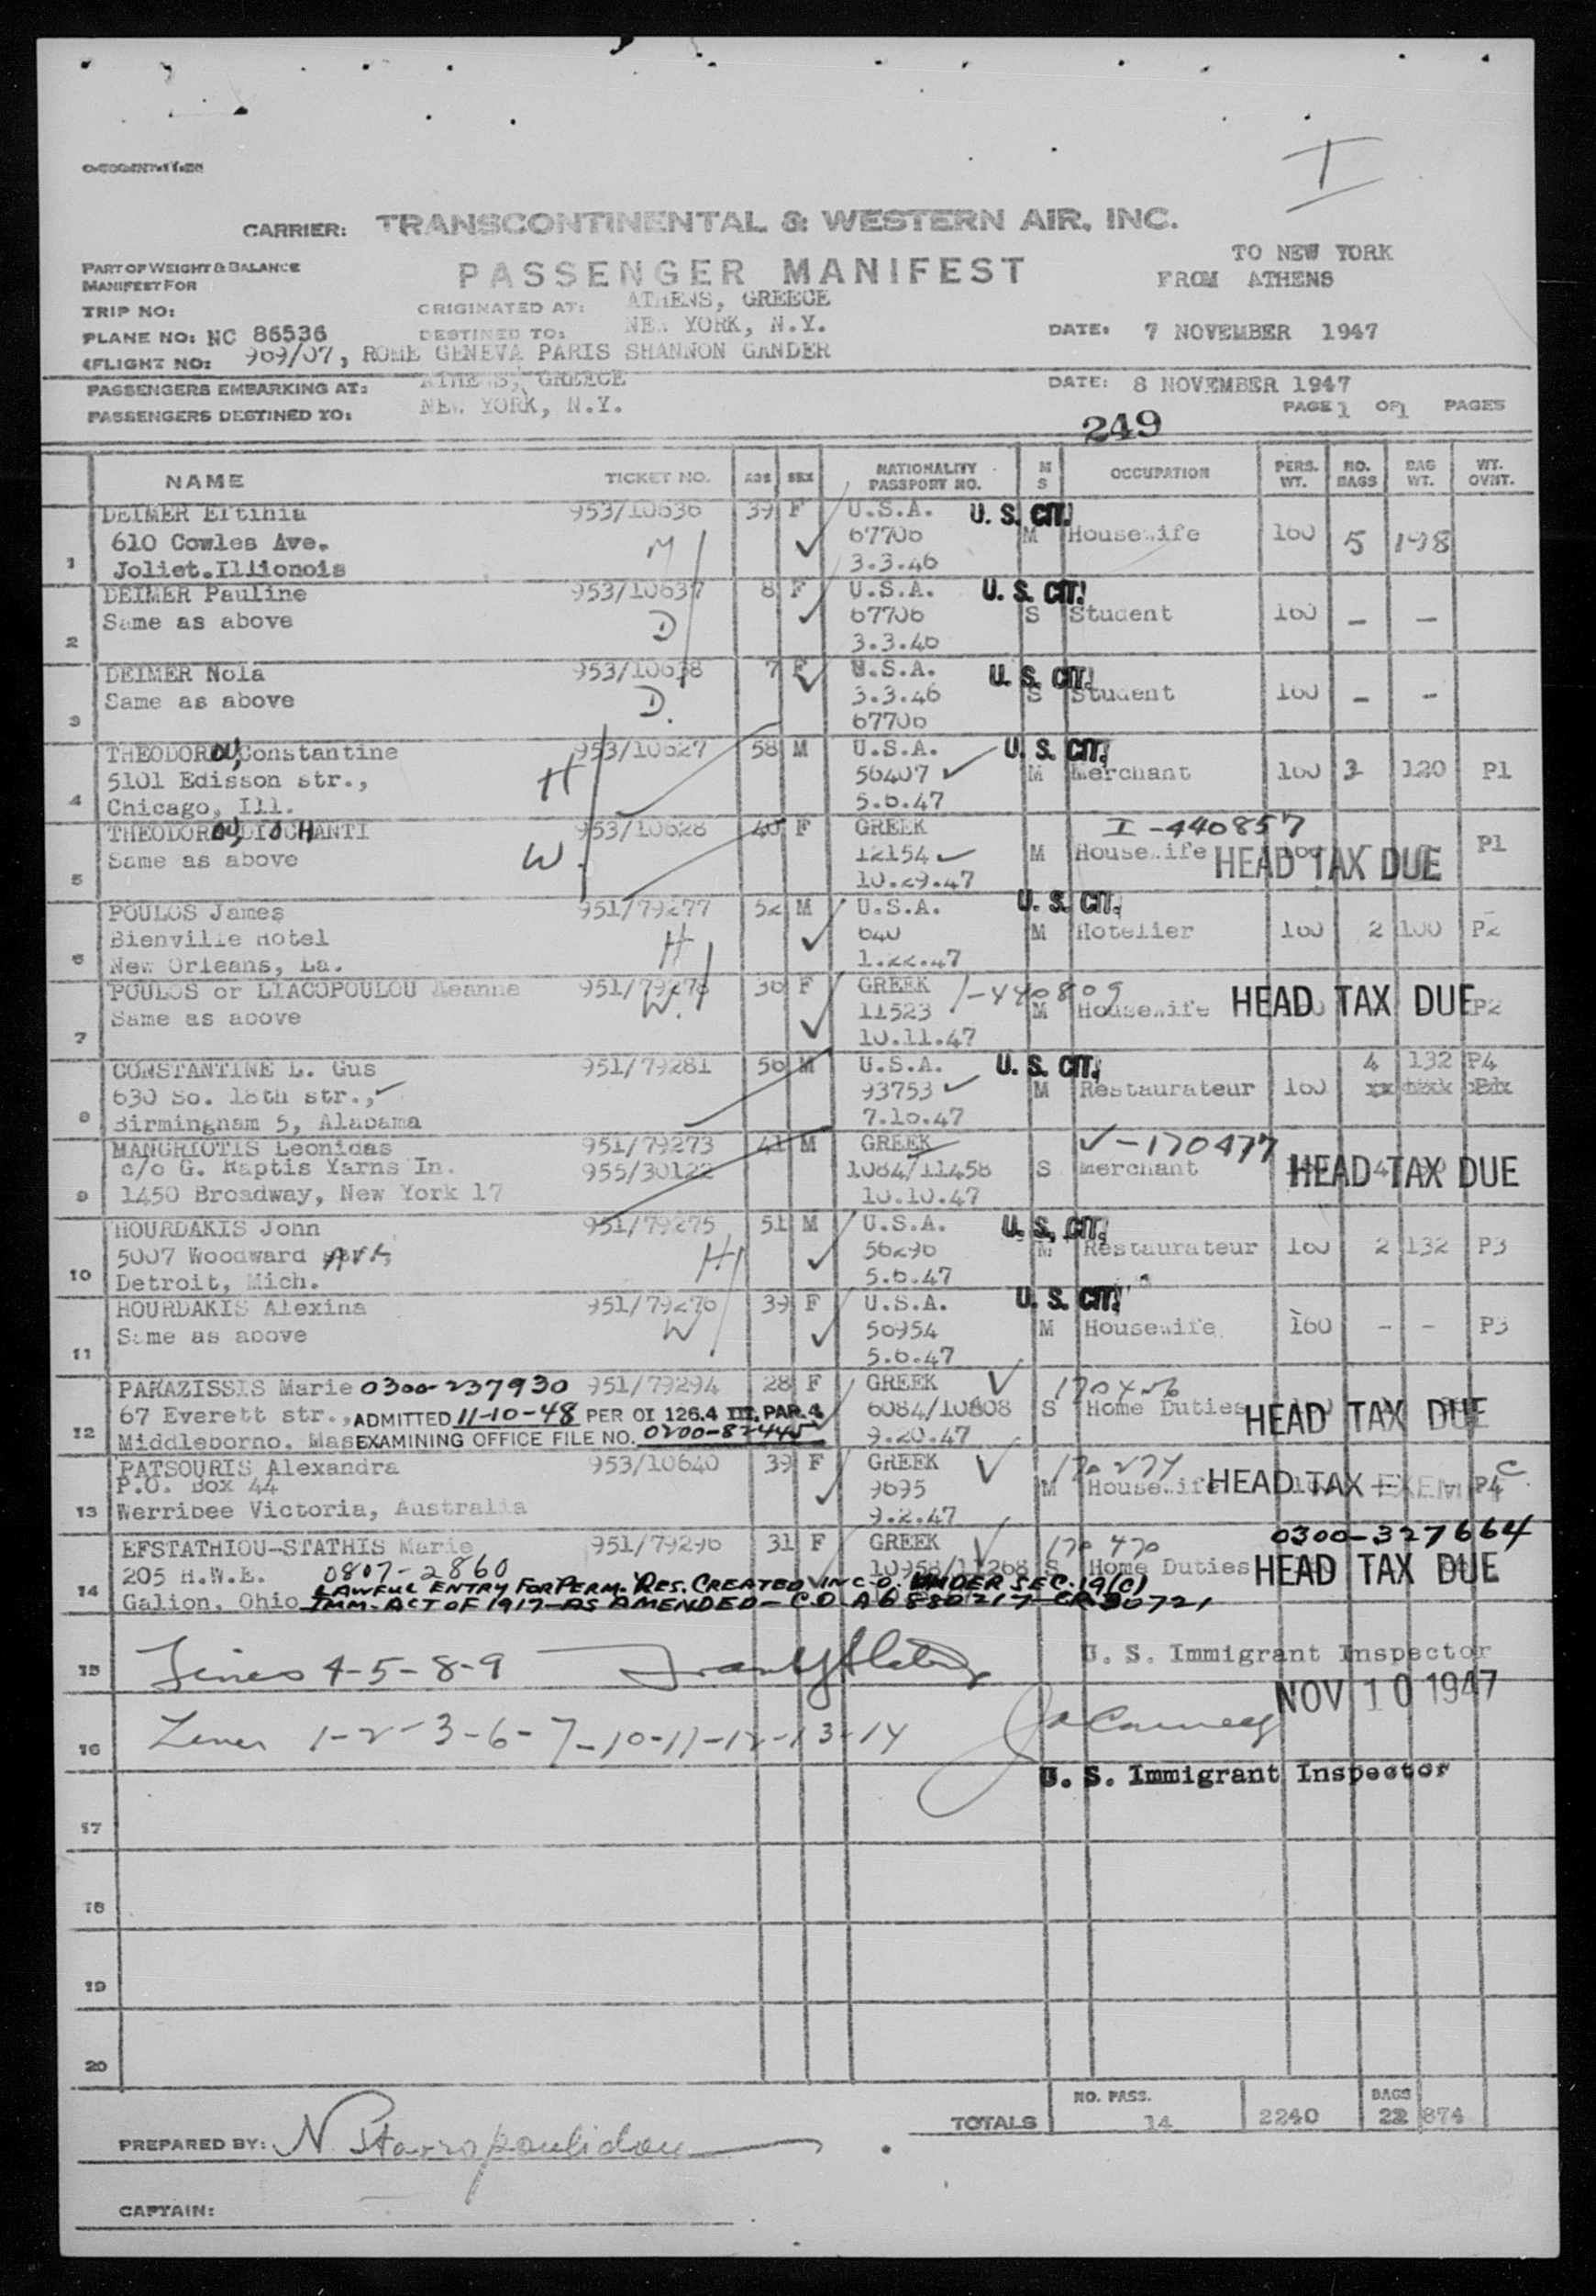 CARRIER: TRANSCONTINENTAL & WESTERN AIR, INC.
I
PART OF WEIGHT & BALANCE
MANIFEST FOR
PASSENGER MANIFEST
TO NEW YORK
FROM ATHENS
TRIP NO:
ORIGINATED AT: ATHENS, GREECE
PLANE NO: NC 86536
DESTINED TO: NEW YORK, N.Y.
DATE: 7 NOVEMBER 1947
FLIGHT NO: 969/07, ROME GENEVA PARIS SHANNON GANDER
PASSENGERS EMBARKING AT: ATHENS, GREECE
DATE: 8 NOVEMBER 1947
PASSENGERS DESTINED TO: NEW YORK, N.Y.
PAGE 1 OF 1 PAGES
249
NAME TICKET NO. AGE SEX NATIONALITY PASSPORT NO. M S OCCUPATION PERS. WT. NO. BAGS BAG WT. WT. OVNT.
DEIMER Eftihia 953/10636 39 F U.S.A. U. S. CIT.
610 Cowles Ave. M 67706 M Housewife 160 5 198
1 Joliet.Illionois 3.3.46
DEIMER Pauline 953/10637 8 F U.S.A. U. S. CIT.
Same as above D 67706 S Student 160 – –
2 3.3.46
DEIMER Nola 953/10638 7 F U.S.A. U. S. CIT.
Same as above D. 3.3.46 S Student 160 – –
3 67706
THEODOROU, Constantine 953/10627 58 M U.S.A. U. S. CIT.
5101 Edisson str., H 56407 M Merchant 160 3 120 P1
4 Chicago, Ill. 5.6.47
THEODOROU, 953/10628 40 F GREEK I-440857
Same as above W. 12154 M Housewife HEAD TAX DUE P1
5 10.29.47
POULOS James 951/79277 52 M U.S.A. U. S. CIT.
Bienville Hotel H 640 M Hotelier 160 2 100 P2
6 New Orleans, La. 1.22.47
POULOS or LIACOPOULOU 951/79278 36 F GREEK 1-440809
Same as above W. 11523 M Housewife HEAD TAX DUE P2
7 10.11.47
CONSTANTINE L. Gus 951/79281 56 M U.S.A. U. S. CIT. 4 132 P4
630 So. 18th str., 93753 M Restaurateur 160
8 Birmingham 5, Alabama 7.10.47
MANGRIOTIS Leonidas 951/79273 41 M GREEK V-170477
c/o G. Raptis Yarns In. 955/30122 1084/11458 S Merchant HEAD TAX DUE
9 1450 Broadway, New York 17 10.10.47
HOURDAKIS John 951/79275 51 M U.S.A. U. S. CIT.
5007 Woodward H 56296 M Restaurateur 160 2 132 P3
10 Detroit, Mich. 5.6.47
HOURDAKIS Alexina 951/79276 39 F U.S.A. U. S. CIT.
Same as above W 56954 M Housewife 160 - - P3
11 5.6.47
PARAZISSIS Marie 0300-237930 951/79294 28 F GREEK V 170456
67 Everett str., ADMITTED 11-10-48 PER OI 126.4 III. PAR. 4 6084/10808 S Home Duties HEAD TAX DUE
12 Middleborno, Mas EXAMINING OFFICE FILE NO. 0200-82445 9.20.47
PATSOURIS Alexandra 953/10640 39 F GREEK V 170274
P.O. Box 44 9695 M Housewife HEAD TAX P4
13 Werribee Victoria, Australia 9.2.47
EFSTATHIOU-STATHIS Marie 951/79296 31 F GREEK V 170470 0300-327664
205 H.W.E. 0807-2860 10958/11268 S Home Duties HEAD TAX DUE
LAWFUL ENTRY FOR PERM. RES. CREATED IN C.O. UNDER SEC. 19(C)
14 Galion, Ohio IMM. ACT OF 1917 AS AMENDED - C.O. A6880217 CR 30721
15 Lines 4-5-8-9 U. S. Immigrant Inspector
NOV 10 1947
16 Lines 1-2-3-6-7-10-11-12-13-14
U. S. Immigrant Inspector
17
18
19
20
TOTALS NO. PASS. 14 2240 BAGS 22 874
PREPARED BY: N. Stavropoulidou
CAPTAIN: